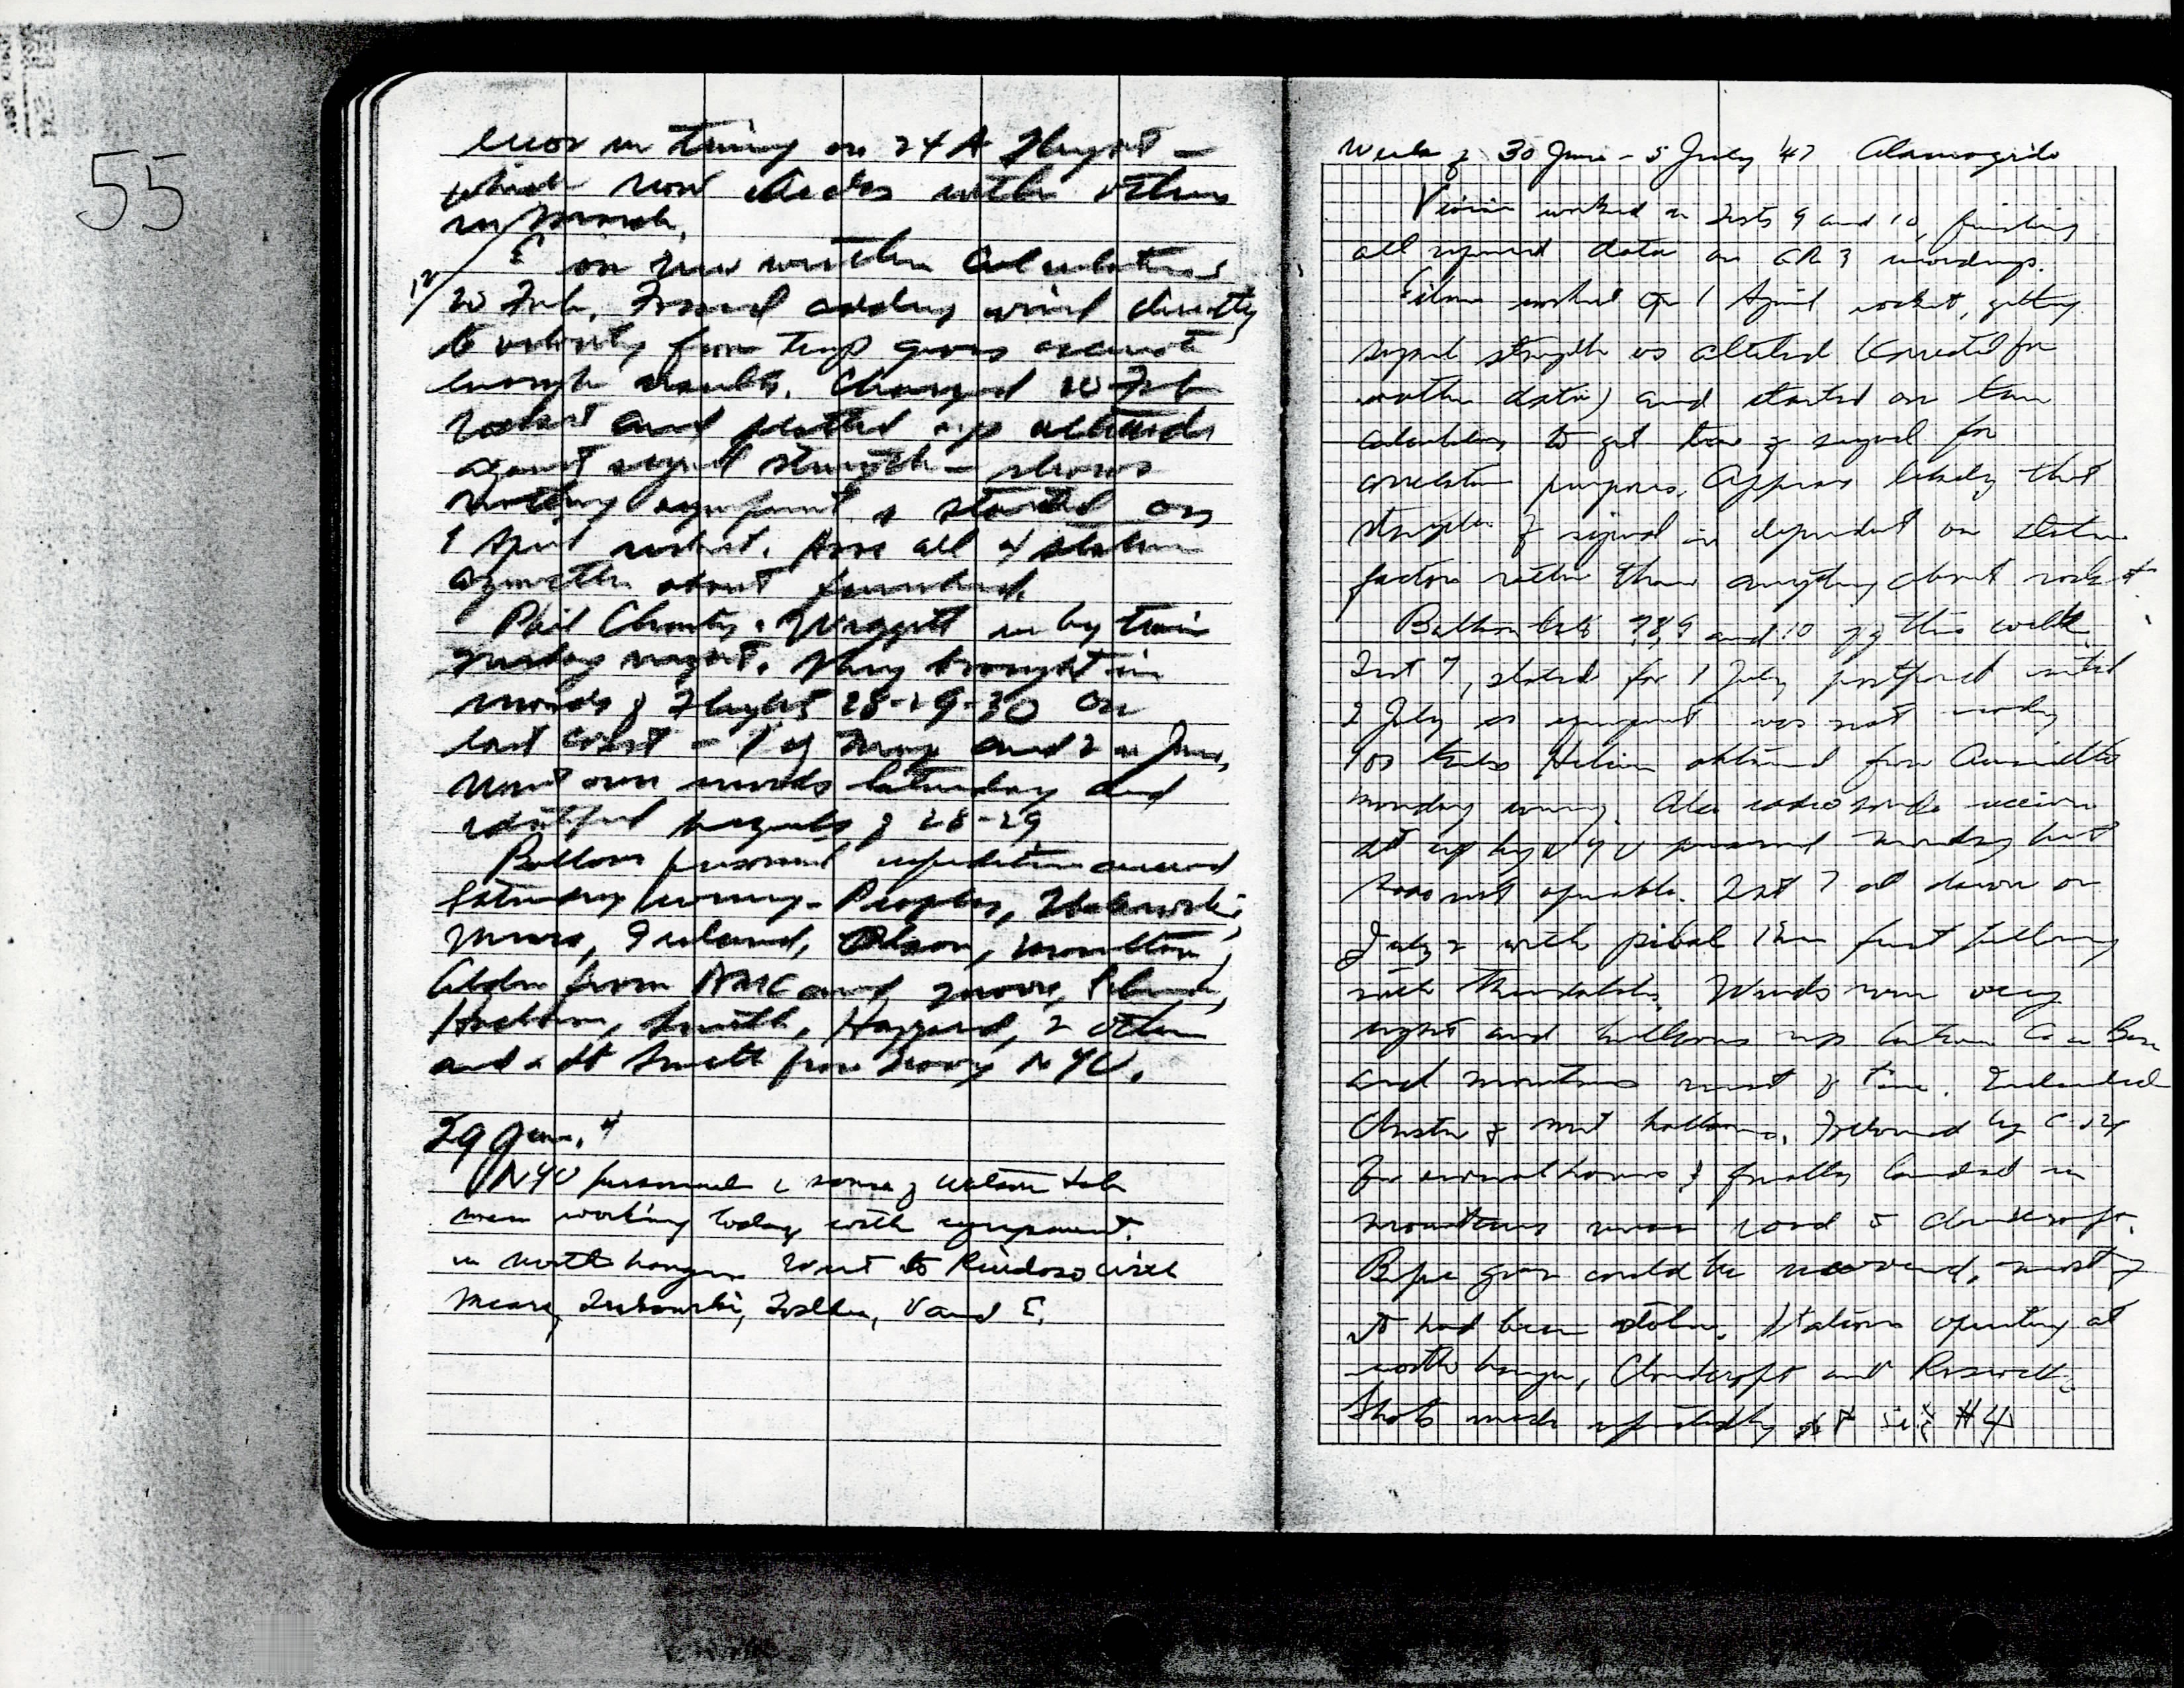 55
error in timing on 24 A Flight —
which now checks with others
in March.
E on new weather calculations
20 Feb. Found adding wind directly
to velocity from temp gives accurate
enough results. Changed 20 Feb
rocket and plotted up altitude
against signal strength — shows
nothing significant. & started on
1 April rocket. Have all 4 station
azimuths about finished.
Phil Chantz, in by train
night. They brought in
records of Flights 28-29-30 on
east coast — 1 of May and 2 in June.
Went over records Saturday and
identified signals of 28-29
Balloon personnel expedition arrived
Saturday evening - Peoples, Trakowski,
Mears, Ireland, Olsen, Moulton,
Alden from AMC and Moore, Schneider,
Hackman, Smith, Hazzard, 2 others
and a Lt Smith from NYU.
29 June.
NYU personnel & some of Watson Lab
men working today with equipment
in north hangar. Went to Ruidoso with
Mears, Trakowski, V and E.
Week of 30 June - 5 July '47 Alamogordo
Vivian worked on Tests 9 and 10, finishing
all required data on CR 3 recordings.
Eileen worked on 1 April rocket, getting
signal strength vs altitude (corrected for
weather data) and started on time
calculations to get time of signal for
correlation purposes. Appears likely that
strength of signal is dependent on station
factors rather than anything about rocket
Balloon tests 7, 8, 9 and 10 off this week.
Test 7, slated for 1 July postponed until
2 July as equipment was not ready
100 tanks Helium obtained from Amarillo
Monday evening. Also radiosonde receiver
set up by NYU personnel Monday but
was not operable. Test 7 at dawn on
July 2 with pibal 1 hr first following
with theodolite. Winds were very
light and balloons up between Base
and mountains most of time. Included
cluster of met balloons. Followed by C-54
for several hours & finally landed in
mountains near road to Cloudcroft.
Before gear could be recovered, most of
it had been stolen. Stations operating at
north hangar, Cloudcroft and Roswell.
Shots made repeatedly at site #4